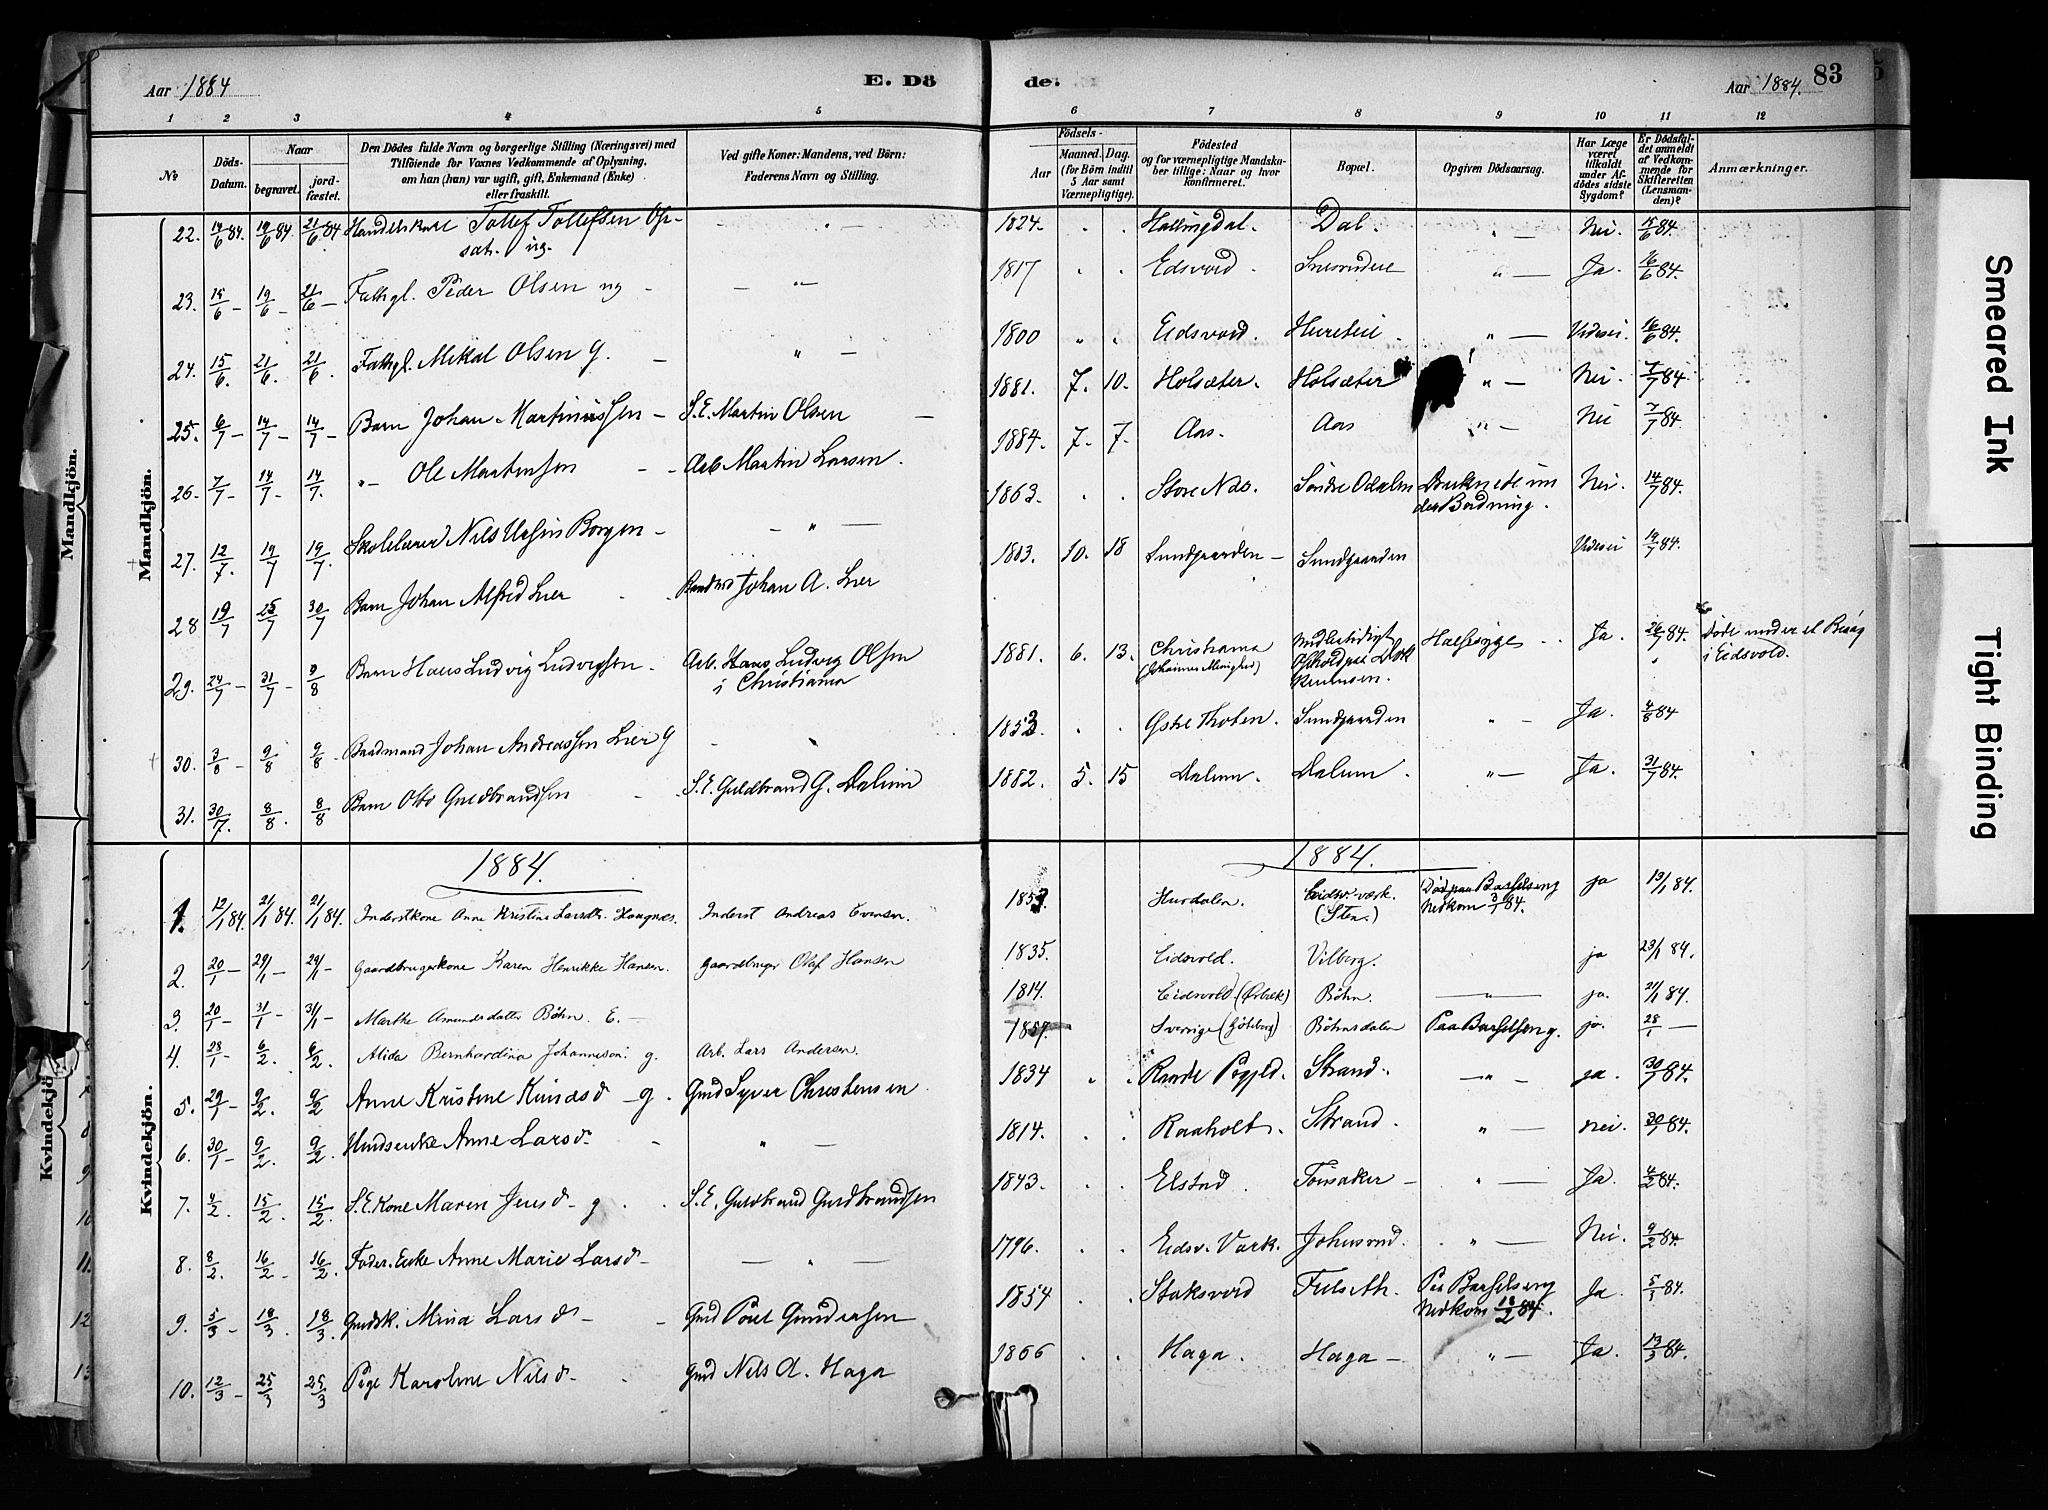 Aar 1884 E. Dö de. Aar 1884. 83
1 2 3 4 5 6 7 8 9 10 11 12
No
Döds-Datum.
Naar
begravet.
jord-fæstet.
Den Dödes fulde Navn og borgerlige Stilling (Næringsvei) med
Tilföiende for Voxnes Vedkommende af Oplysning,
om han (hun) var ugift, gift, Enkemand (Enke)
eller fraskilt.
Ved gifte Koner: Mandens, ved Börn:
Faderens Navn og Stilling.
Födsels-
Aar
Maaned. Dag.
(for Börn indtil
5 Aar samt
Værnepligtige).
Födested
og for værnepligtige Mandska-
ber tillige: Naar og hvor
konfirmeret.
Bopæl.
Opgiven Dödsaarsag.
Har Læge
været
tilkaldt
under Af-
dödes sidste
Sygdom?
Er Dödsfal-
det anmeldt
af Vedkom-
mende for
Skifteretten
(Lensman-
den)?
Anmærkninger.
Mandkjön.
22. 14/6 84. 19/6 84 21/6 84 Tollef Tollefsen 1824. Hallingdal. Dal. " — Nei. 15/6 84.
23. 15/6 — 19/6 — 21/6 — Fattigl. Peder Olsen ug — — " — 1817 Edsvord. " — Ja. 16/6 84.
24. 15/6. 21/6. 21/6 Fattigl. Mikal Olsen g. — " — 1800 Eidsvord. " — 16/6 84.
25. 6/7 — 14/7 — 14/7 — Barn Johan Martiniussen — S.E. Martin Olsen — 1881. 7. 10. Holsæter. Holsæter " — Nei. 7/7 84.
26. 7/7 — 14/7 — 14/7. " Ole Martinsen — Arb Martin Larsen. 1884. 7. 7. Aas. Aas " — Nei 7/7 84.
27. 12/7. 19/7 19/7. Skolelærer Nils Ursin Borgen — — " — 1863. Store Ndo. Söndre Odalen Druknede un
der Badning. Nei. 14/7 84.
28 19/7 25/7 30/7 Barn Johan Alfred Lier Johan A. Lier 10. 18 Sundgaarden — Sundgaarden 19/7 84.
29. 24/7 — 31/7 — 8/8 Barn Hans Ludvig Ludvigsen. Arb. Hans Ludvig Olsen
i Christiania 1881. 6. 13. Christiania Midlertidigt
Halssyge Ja. 26/7 84. Döde under et Besög
i Eidsvold.
30. 3/8 — 9/8 9/8 Johan Andreassen Lier G " 1853. Østre Thoten. Sundgaarden " — Ja. 4/8 84
31. 30/7. 8/8. 8/8 Barn Otto Guldbrandsen S.E. Guldbrand G. Dalum 1882. 5. 15 Dalum. Dalum. " — Ja. 31/7 84.
1884. 1884.
Kvindekjön.
1. 12/1 84. 21/1 84. 21/1 84 Inderstkone Anne Kristine Larsdtr. Haagnæs. Inderst Andreas Evensen. Hurdalen. Eidsv. værk.
(Sten.) Död paa Barselseng
Nedkom 3/1 84. ja 13/1 84.
2. 20/1 — 29/1 — 29/1 Gaardbrugerkone Karen Henrikke Hansen. Gaardbruger Olaf Hansen 1835. Eidsvold. Vilberg. ja 23/1 84.
3. 20/1 — 31/1 — 31/1 Marthe Amundsdatter Böhn. E. — 1814. Eidsvold Böhn. — " — ja. 21/1 84.
4. 28/1 — 6/2. 6/2. Alida Bernhardina Johannesen. g. Arb. Lars Andersen. Sverrige (Göteborg) Böhnsdalen Paa Barselseng. ja. 28/1 —
5. 29/1 — 9/2. 9/2 Anne Kristine Knudsd — g. Gmd Syver Christensen 1834 Strand. — " — ja. 30/1 84.
6. 30/1 — 9/2. 9/2. Anne Larsd. " — 1814. Raaholt. Strand. " — nei. 30/1 84.
7. 4/2. 15/2. 15/2. S.E. Kone Maren Jensd — g. S.E. Guldbrand Guldbrandsen 1843. Elstad. " — Ja. 4/2 84.
8. 8/2. 16/2 — 16/2. Anne Marie Larsd — — " — 1796. Eidsv. Værk. Johnsrud. " — Nei. 9/2 84.
9. 5/3 — 18/3. 18/3. Gmdsk. Mina Larsd — Gmd Poul Gundersen 1854 Staksvord Paa Barselseng
Nedkom 18/2 84. Ja. 5/3 84.
10. 12/3 — 25/3 25/3 Pige Karoline Nilsd — Gmd Nils A. Haga 1866 Haga. Haga — " — Ja. 13/3 84.
Mandkjön.
Kvindekjön
Smeared Ink
Tight Binding